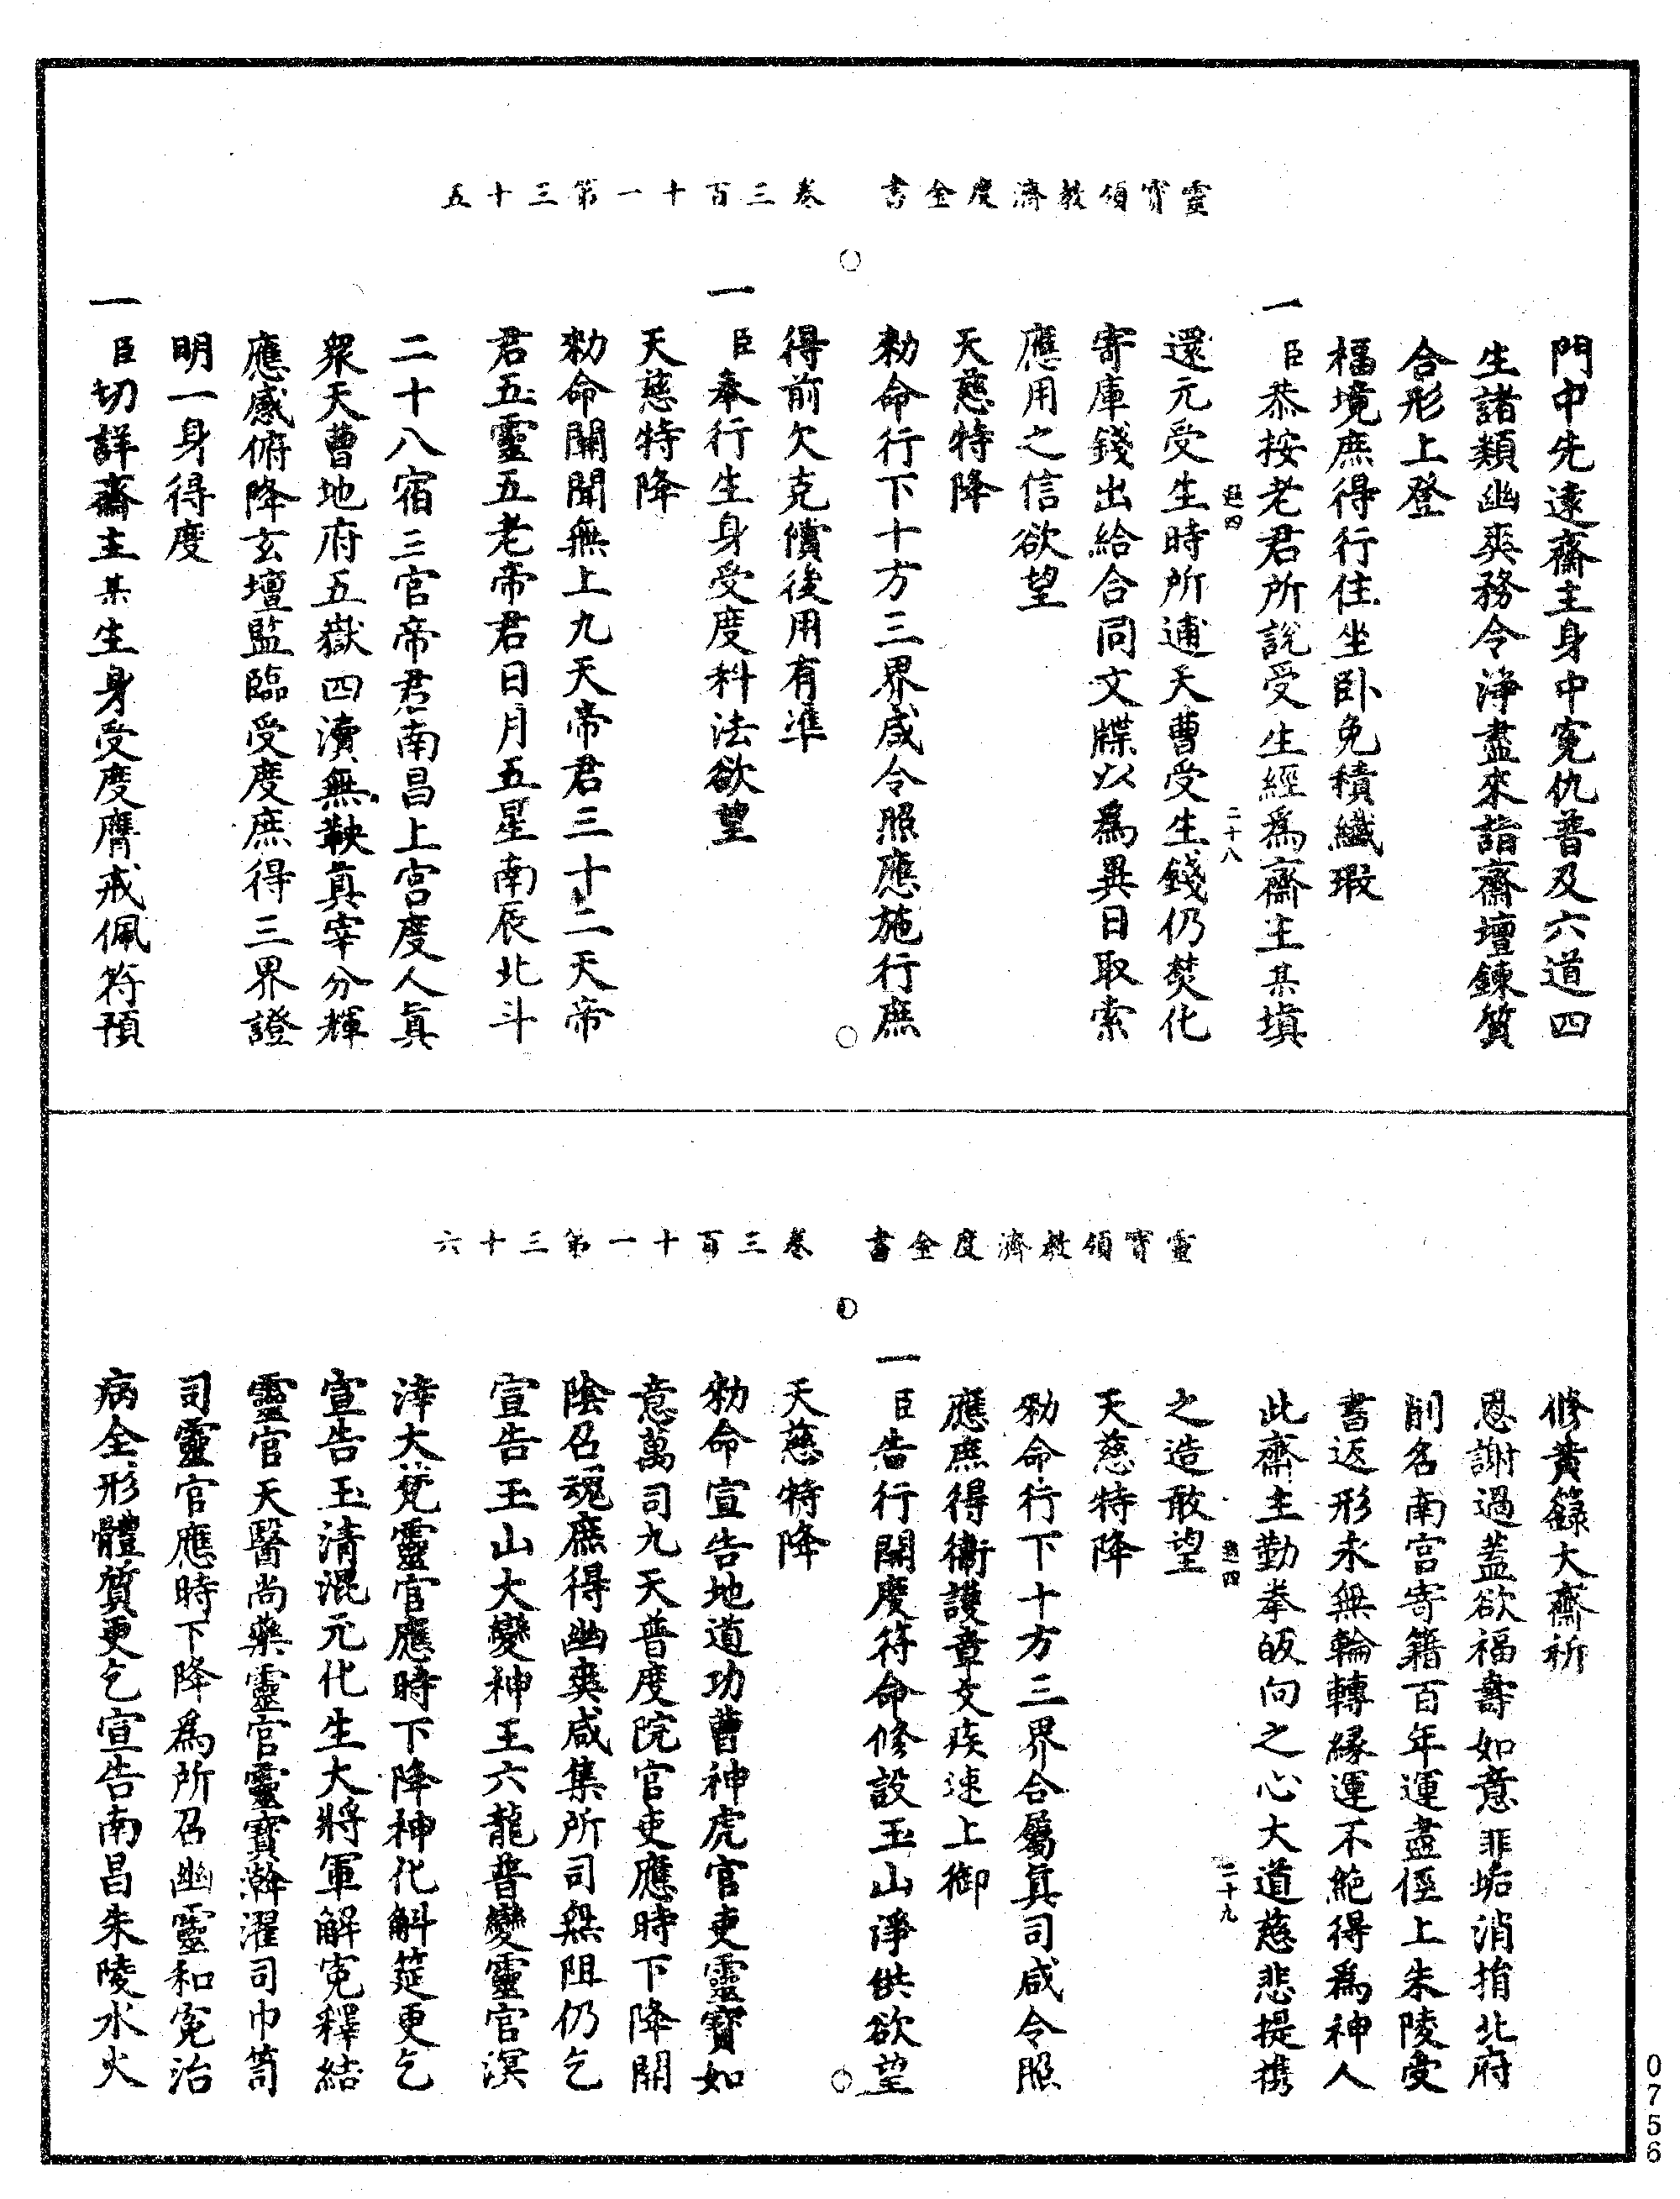 靈寶領教濟度金書　卷三百十一第三十五
門中先遠齋主身中寃仇普及六道四
生諸類幽爽務令浄盡來詣齋壇鍊質
合形上登
福境庶得行住坐卧免積纖瑕
一臣恭按老君所說受生經爲齋主某塡
二十八
還元受生時所逋天曹受生錢仍焚化
寄庫錢出給合同文牒以爲異日取索
應用之信欲望
天慈特降
勑命行下十方三界咸令照應施行庶
得前欠克償後用有準
一臣奉行生身受度科法欲望
天慈特降
勑命關聞無上九天帝君三十二天帝
君五靈五老帝君日月五星南辰北斗
二十八宿三官帝君南昌上宫度人眞
衆天曹地府五嶽四瀆無鞅眞宰分輝
應感俯降玄壇監臨受度庶得三界證
明一身得度
一臣切詳齋主某生身受度膺戒佩符預
靈寶領教濟度金書　卷三百十一第三十六
修黄籙大齋祈
恩謝過蓋欲福壽如意罪垢消揃北府
削名南宫寄籍百年運盡徑上朱陵受
書返形永無輪轉緣運不絶得爲神人
此齋主勤拳皈向之心大道慈悲提携
二十九
之造敢望
天慈特降
勑命行下十方三界合屬眞司咸令照
應庶得衛護章文疾速上御
一臣告行開度符命修設玉山淨供欲望
天慈特降
勑命宣告地道功曹神虎官吏靈寶如
意萬司九天普度院官吏應時下降開
陰召魂庶得幽爽咸集所司無阻仍乞
宣告玉山大變神王六龍普變靈官溟
涬大梵靈官應時下降神化斛筵更乞
宣告玉清混元化生大將軍解寃釋結
靈官天醫尚藥靈官靈寶澣濯司巾笥
司靈官應時下降爲所召幽靈和寃治
病全形體質更乞宣告南昌朱陵水火
0756